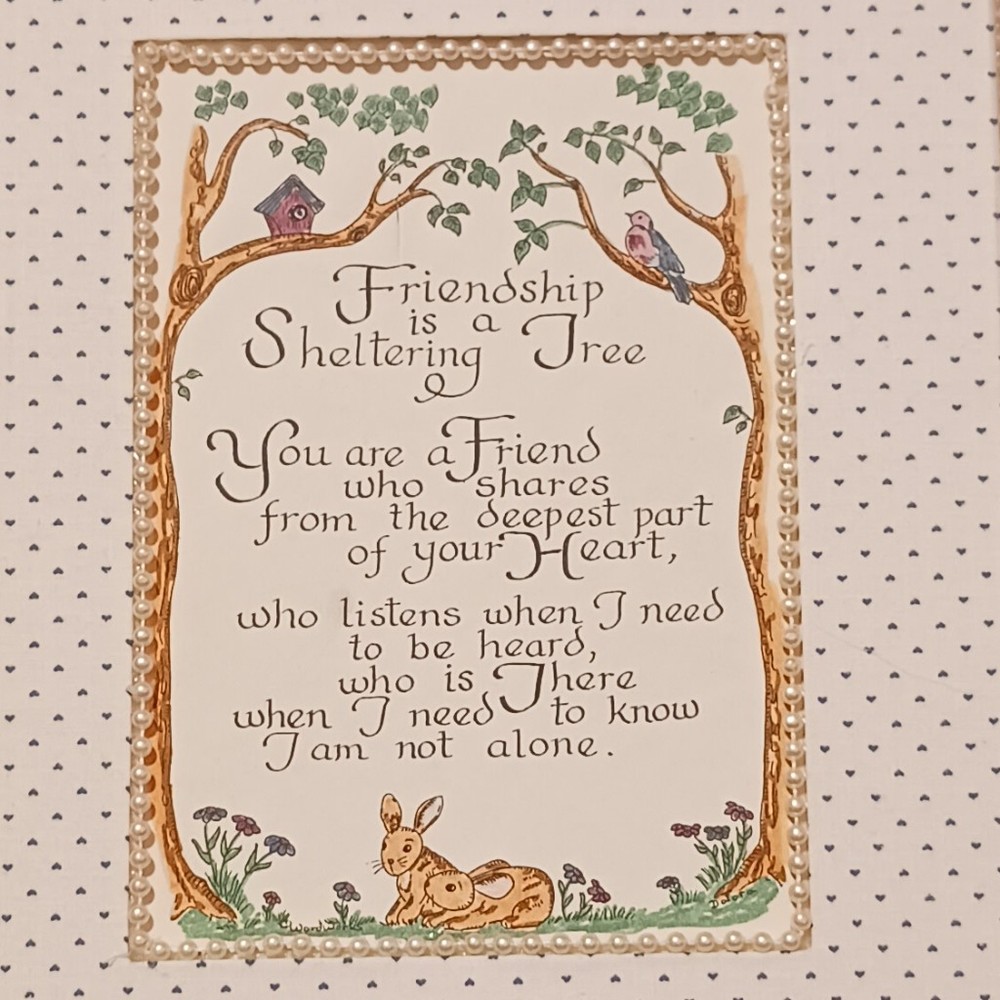 Friendship
is a
Sheltering Tree
You are a Friend
who shares
from the deepest part
of your Heart,
who listens when I need
to be heard,
who is There
when I need to know
I am not alone.